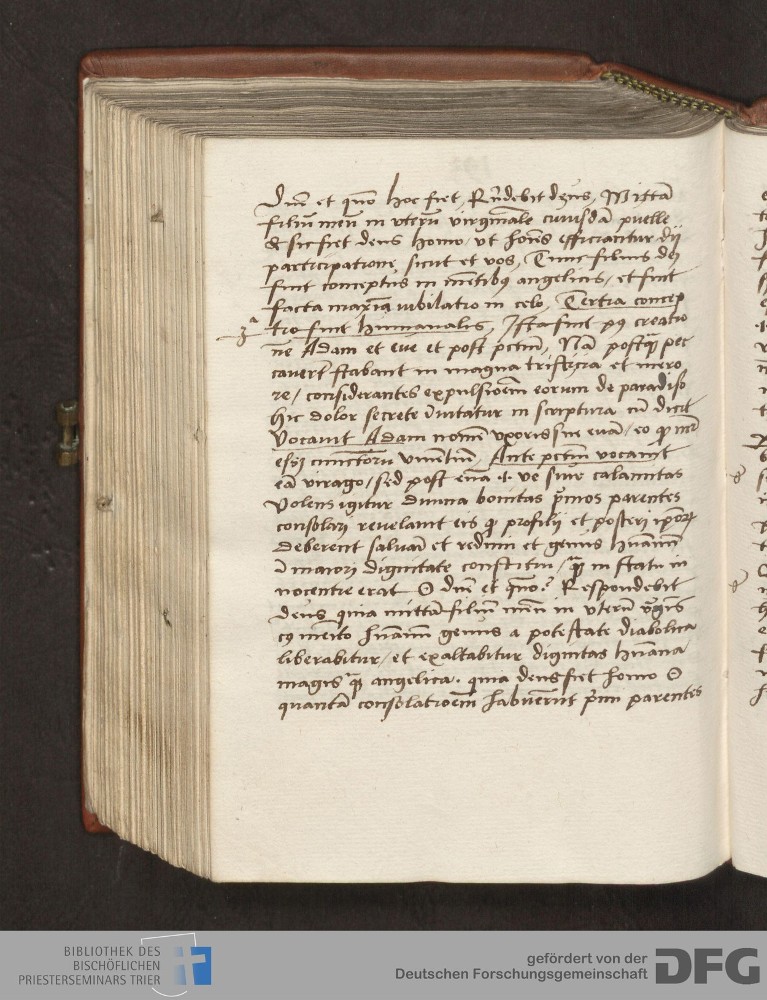 Dnē et quō hoc fiet, Rñdebit deus, Mittā
filiū meū in vterū virginale cuiusdā puelle
& sic fiet deus homo, vt hoīes efficiantur dij
participatione, sicut et vos, Tunc filius dei
fuit conceptus in mētibus angelicis, et fuit
facta maxīa iubilatio in celo, Tertia concep
3ᵃ tio fuit humanalis, Ista fuit pꝰ creatio
nē Adam et eue et post pctm̄, Nā postꝙ̄ pec
cauerūt stabant in magna tristicia et mero
re / considerantes expulsioēm eorum de paradiso
hic dolor secrete īnuitatur in scriptura cū dicit
Vocauit Adam nomē vxoris sue euā, eo ꝙ mr̄
esset cunctorū viuentiū, Ante pctm̄ vocauit
eā virago, sed post eua .i. ve siue calamitas
Volens igitur diuina bonitas p̄mos parentes
consolari reuelauit eis ꝙ profilij et posteri ip̄oꝝ
deberent saluari et redimi et genus hūanū
ī maiori dignitate constitui / ꝙ̄ in statu in
nocentie erat O dnē et quō? Respondebit
deus quia mittā filiū meū in vterū v̄gīs
cꝰ merito hūanū genus a potestate diabolica
liberabitur, et exaltabitur dignitas hūana
magis ꝙ̄ angelica. quia deus fiet homo O
quantā consolatioēm habuerūt p̄mi parentes
BIBLIOTHEK DES
BISCHÖFLICHEN
PRIESTERSEMINARS TRIER
gefördert von der
Deutschen Forschungsgemeinschaft
DFG